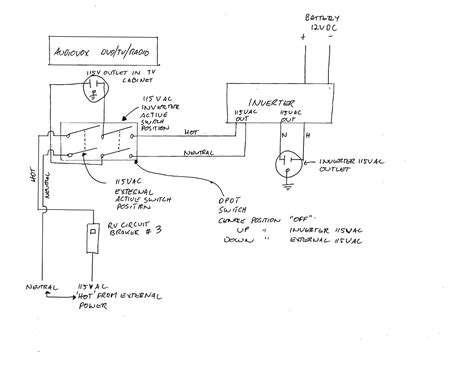 BATTERY
12VDC
+
-
AUDIOVOX DVD/TV/RADIO
115V OUTLET IN TV
CABINET
115VAC
INVERTER
ACTIVE
SWITCH
POSITION
INVERTER
115VAC
OUT
115VAC
OUT
HOT
NEUTRAL
N
H
INVERTER 115VAC
OUTLET
HOT
NEUTRAL
115VAC
EXTERNAL
ACTIVE SWITCH
POSITION
DPDT
SWITCH
CENTRE POSITION "OFF"
UP " INVERTER 115VAC
DOWN " EXTERNAL 115VAC
RV CIRCUIT
BROKER #3
NEUTRAL
115VAC
'HOT' FROM EXTERNAL
POWER